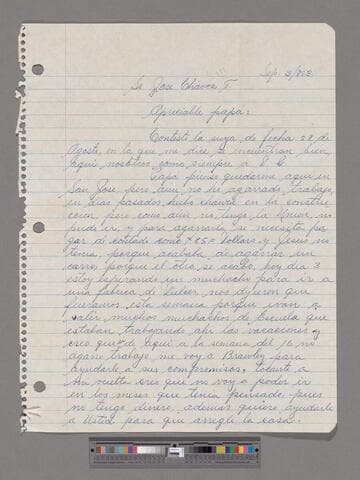 Sep. 3/963
Sr Jose Chávez T.
Apreciable papá:
Contesté la suya de fecha 28 de
Agosto, en la que me dice se encuentran bien
aquí nosotros como siempre a D. G.
Papá pienso quedarme aquí en
San Jose pero aun no he agarrado trabajo,
en dias pasados hubo chanza en la construc
cion pero como aun no tengo la Union no
pude ir, y para agarrarla se necesita pa
gar de contado como Dollars y Jesus no
tenia, porque acababa de agarrar un
carro, porque el otro se acabó, hoy dia 3
estoy esperando un muchacho para ir a
una fabrica de Dulces, nos dijeron que
fueramos esta semana porque ivan a
salir muchos muchachos de Escuela que
estaban trabajando ahi las vacaciones y
creo que de aqui a la semana del 16 no
agarro trabajo me voy a Brawley para
ayudarle a sus compromisos, tocante a
mi vuelta creo que no voy a poder ir
en los meses que tenia pensado, pues
no tengo dinero, ademas quiero ayudarle
a Usted para que arregle la casa.